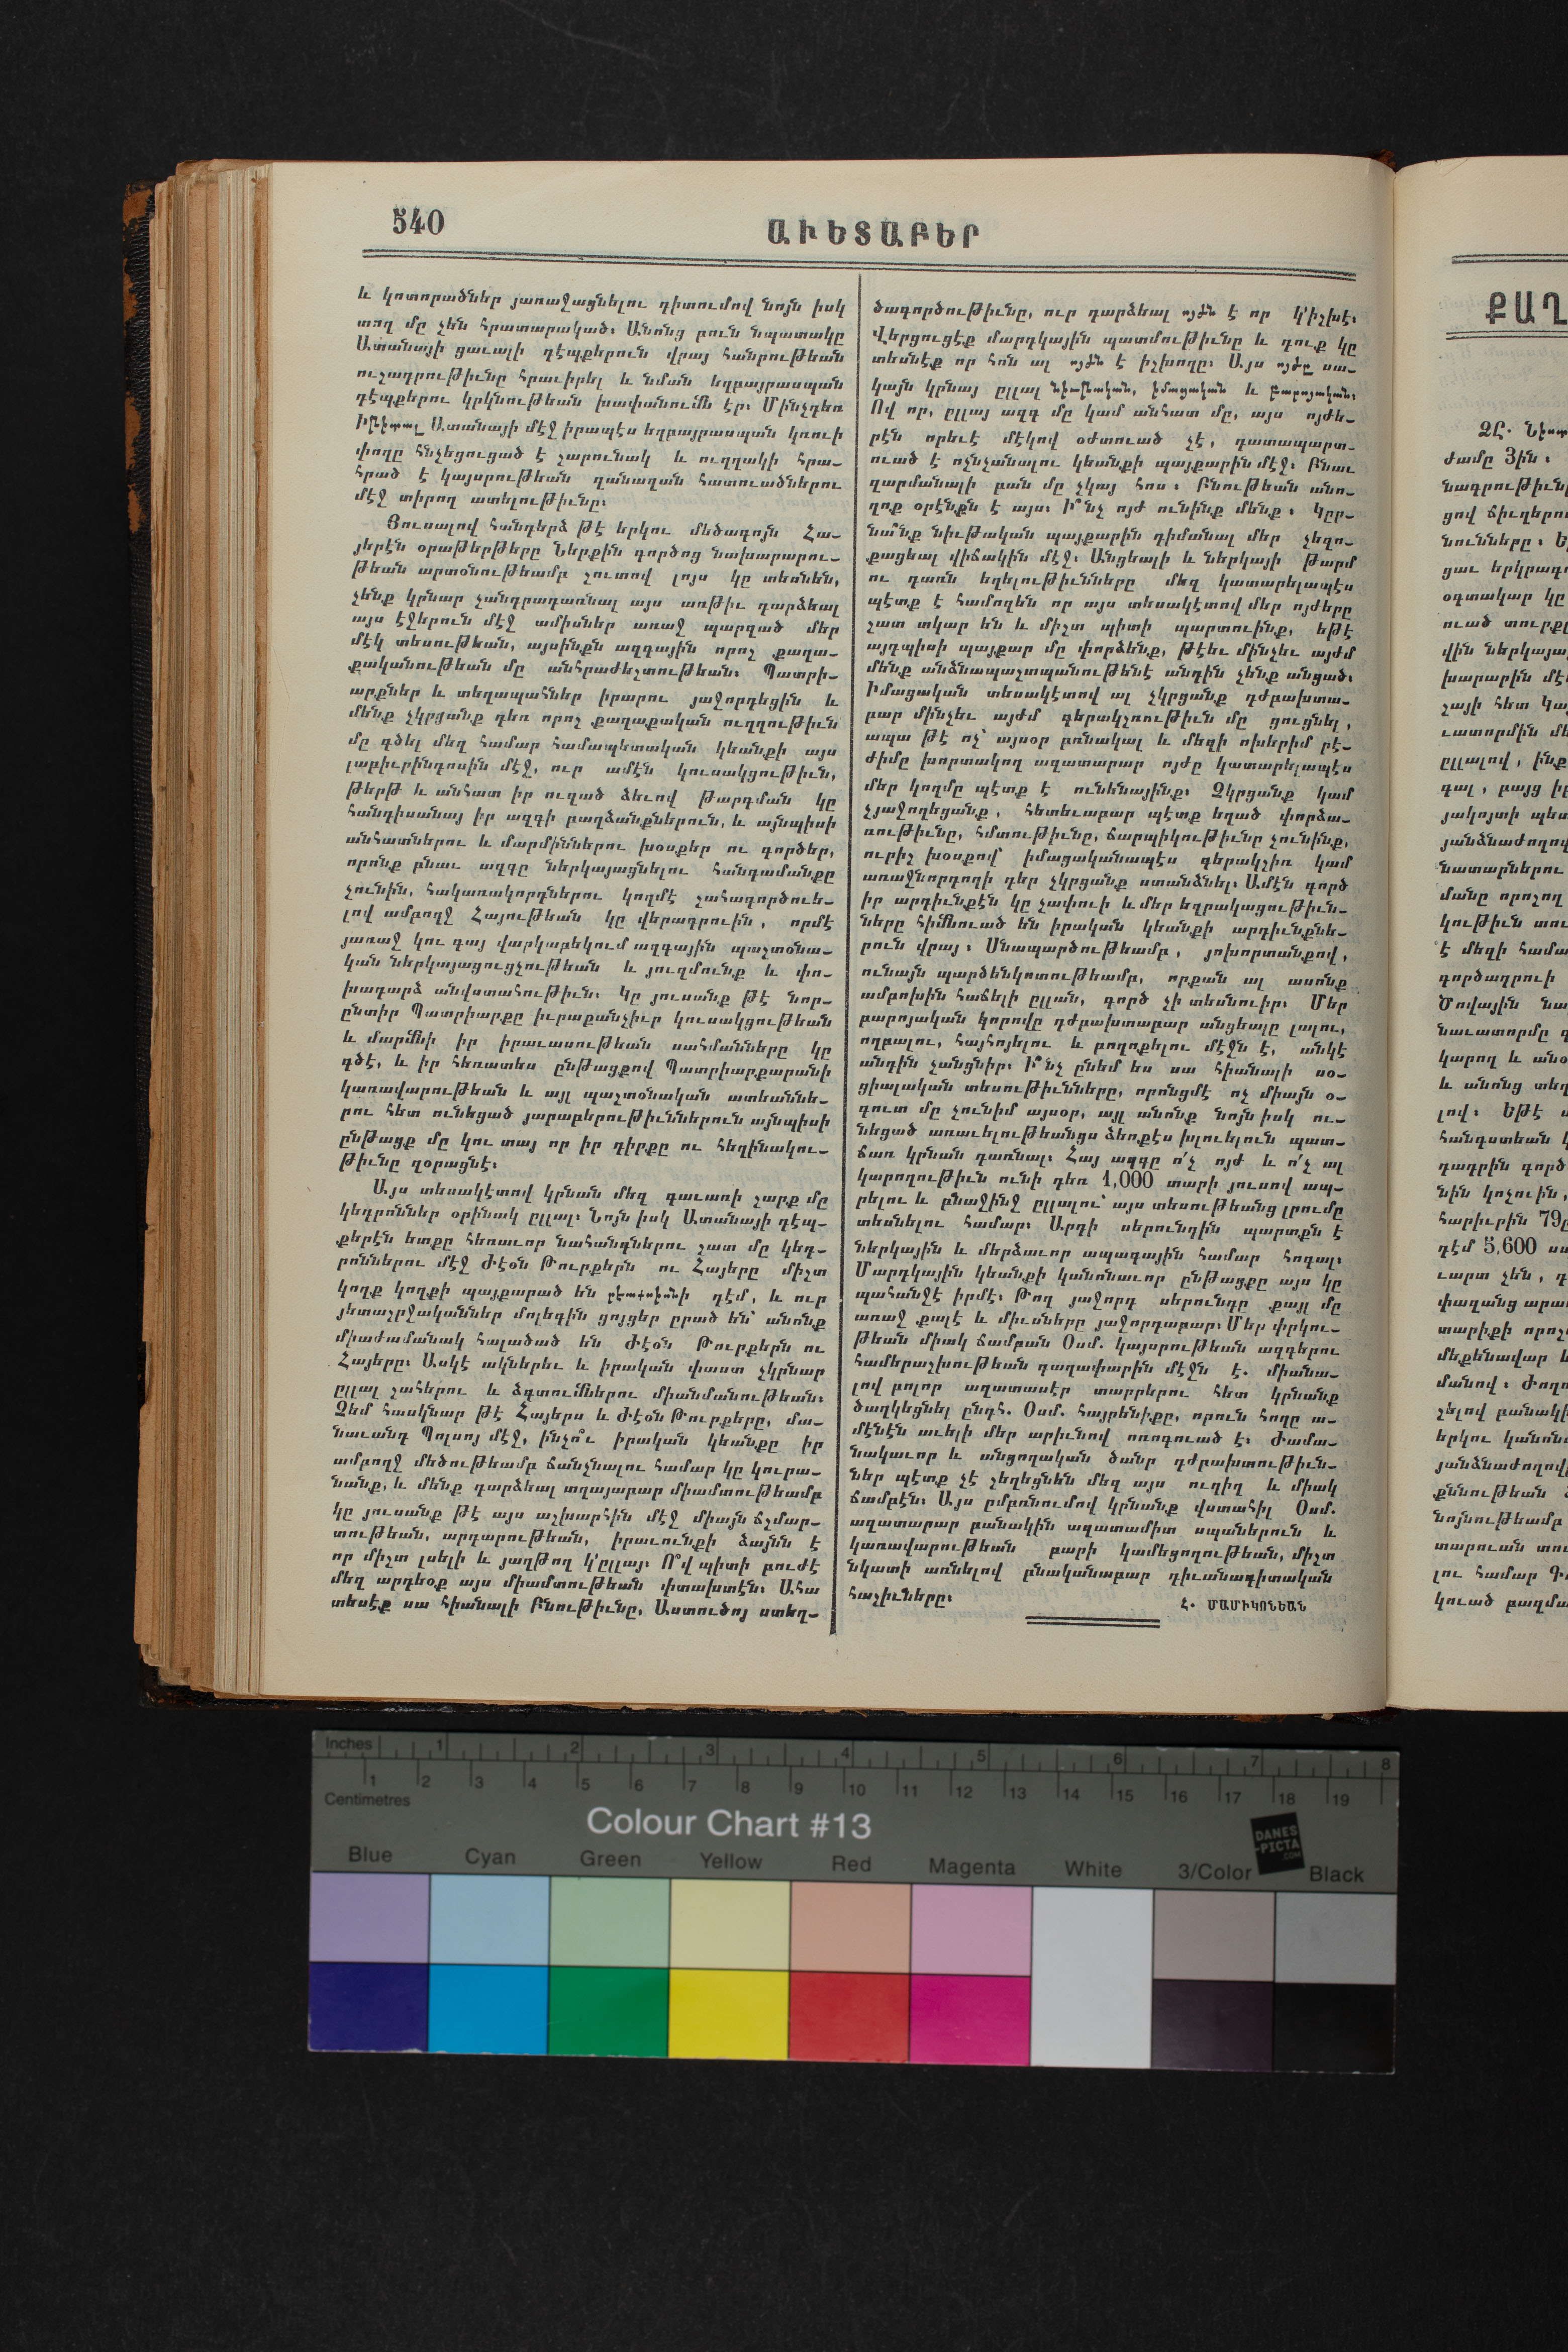 540
ԱՒԵՏԱԲԵՐ
և կոտորածներ յառաջացնելու դիտումով նոյն իսկ
տող մը չեն հրատարակած։ Անոնց բուն նպատակը
Ատանայի ցաւալի դէպքերուն վրայ հանրութեան
ուշադրութիւնը հրաւիրել և նման եղբայրասպան
դէպքերու կրկնութեան խափանումն էր։ Մինչդեռ
Իթիտալ Ատանայի մէջ իրապէս եղբայրասպան կռուի
փողը հնչեցուցած է շարունակ և ուղղակի հրա–
հրած է կայսրութեան զանազան հատուածներու
մէջ տիրող ատելութիւնը։
Յուսալով հանդերձ թէ երկու մեծագոյն Հա–
յերէն օրաթերթերը Ներքին գործոց նախարարու–
թեան արտօնութեամբ շուտով լոյս կը տեսնեն,
չենք կրնար չանդրադառնալ այս առթիւ դարձեալ
այս էջերուն մէջ ամիսներ առաջ պարզած մեր
մէկ տեսութեան, այսինքն ազգային որոշ քաղա–
քականութեան մը անհրաժեշտութեան։ Պատրի–
արքներ և տեղապահներ իրարու յաջորդեցին և
մենք չկրցանք դեռ որոշ քաղաքական ուղղութիւն
մը գծել մեզ համար համապետական կեանքի այս
լաբիւրինդոսին մէջ, ուր ամէն կուսակցութիւն,
թերթ և անհատ իր ուզած ձեւով թարգման կը
հանդիսանայ իր ազգի բաղձանքներուն, և այնպիսի
անհատներու և մարմիններու խօսքեր ու գործեր,
որոնք բնաւ ազգը ներկայացնելու հանգամանքը
չունին, հակառակորդներու կողմէ շահագործուե–
լով ամբողջ Հայութեան կը վերագրուին, որմէ
յառաջ կու գայ վարկաբեկում ազգային պաշտօնա–
կան ներկայացուցչութեան և յուզմունք և փո–
խադարձ անվստահութիւն։ Կը յուսանք թէ նոր–
ընտիր Պատրիարքը իւրաքանչիւր կուսակցութեան
և մարմնի իր իրաւասութեան սահմանները կը
գծէ, և իր հեռատես ընթացքով Պատրիարքարանի
կառավարութեան և այլ պաշտօնական ատեաննե–
րու հետ ունեցած յարաբերութիւններուն այնպիսի
ընթացք մը կու տայ որ իր դիրքը ու հեղինակու–
թիւնը զօրացնէ։
Այս տեսակէտով կրնան մեզ գաւառի շարք մը
կեդրոններ օրինակ ըլլալ։ Նոյն իսկ Ատանայի դէպ–
քերէն ետքը հեռաւոր նահանգներու շատ մը կեդ–
րոններու մէջ Ժէօն Թուրքերն ու Հայերը միշտ
կողք կողքի պայքարած են րէաքսիոնի դէմ, և ուր
յետաշրջականներ մոլեգին ցոյցեր ըրած են՝ անոնք
միաժամանակ հալածած են Ժէօն Թուրքերն ու
Հայերը։ Ասկէ ակներեւ և իրական փաստ չկրնար
ըլլալ շահերու և ձգտումներու միանմանութեան։
Չեմ հասկնար թէ Հայերս և Ժէօն Թուրքերը, մա–
նաւանդ Պոլսոյ մէջ, ինչո՞ւ իրական կեանքը իր
ամբողջ մեծութեամբ ճանչնալու համար կը կուրա–
նանք, և մենք դարձեալ տղայաբար միամտութեամբ
կը յուսանք թէ այս աշխարհին մէջ միայն ճշմար–
տութեան, արդարութեան, իրաւունքի ձայնն է
որ միշտ լսելի և յաղթող կ'ըլլայ։ Ո՞վ պիտի բուժէ
մեզ արդեօք այս միամտութեան փտախտէն։ Ահա
տեսէք սա հիանալի Բնութիւնը, Աստուծոյ ստեղ–
ծագործութիւնը, ուր դարձեալ ոյժն է որ կ'իշխէ։
Վերցուցէք մարդկային պատմութիւնը և դուք կը
տեսնէք որ հոն ալ ոյժն է իշխողը։ Այս ոյժը սա–
կայն կրնայ ըլլալ նիւթական, իմացական և բարոյական։
Ով որ, ըլլայ ազգ մը կամ անհատ մը, այս ոյժե–
րէն որեւէ մէկով օժտուած չէ, դատապարտ–
ուած է ոչնչանալու կեանքի պայքարին մէջ։ Բնաւ
զարմանալի բան մը չկայ հոս։ Բնութեան անո–
ղոք օրէնքն է այս։ Ի՞նչ ոյժ ունինք մենք։ Կըր–
նա՞նք նիւթական պայքարին դիմանալ մեր չեզո–
քացեալ վիճակին մէջ։ Անցեալի և ներկայի թարմ
ու դառն եղելութիւնները մեզ կատարելապէս
պէտք է համոզեն որ այս տեսակէտով մեր ոյժերը
շատ տկար են և միշտ պիտի պարտուինք, եթէ
այդպիսի պայքար մը փորձենք, թէեւ մինչեւ այժմ
մենք անձնապաշտպանութենէ անդին չենք անցած։
Իմացական տեսակէտով ալ չկրցանք դժբախտա–
բար մինչեւ այժմ գերակշռութիւն մը ցուցնել,
ապա թէ ոչ՝ այսօր բռնակալ և մեզի ոխերիմ րէ–
ժիմը խորտակող ազատարար ոյժը կատարելապէս
մեր կողմը պէտք է ունենայինք։ Չկրցանք կամ
չյաջողեցանք, հետեւաբար պէտք եղած փորձա–
ռութիւնը, հմտութիւնը, ճարպիկութիւնը չունինք,
ուրիշ խօսքով՝ իմացականապէս գերակշիռ կամ
առաջնորդողի դեր չկրցանք ստանձնել։ Ամէն գործ
իր արդիւնքէն կը չափուի և մեր եզրակացութիւն–
ները հիմնուած են իրական կեանքի արդիւնքնե–
րուն վրայ։ Սնապարծութեամբ, յոխորտանքով,
ունայն պարծենկոտութեամբ, որքան ալ ասոնք
ամբոխին հաճելի ըլլան, գործ չի տեսնուիր։ Մեր
բարոյական կորովը դժբախտաբար անցեալը լալու,
ողբալու, հայհոյելու և բողոքելու մէջն է, անկէ
անդին չանցնիր։ Ի՞նչ ընեմ ես սա հիանալի սօ–
ցիալական տեսութիւնները, որոնցմէ ոչ միայն օ–
գուտ մը չունիմ այսօր, այլ անոնք նոյն իսկ ու–
նեցած առաւելութեանցս ձեռքէս խլուելուն պատ–
ճառ կրնան դառնալ։ Հայ ազգը ո՛չ ոյժ և ո՛չ ալ
կարողութիւն ունի դեռ 1,000 տարի յուսով ապ–
րելու և բնաջինջ ըլլալու՝ այս տեսութեանց լրումը
տեսնելու համար։ Արդի սերունդին պարտքն է
ներկային և մերձաւոր ապագային համար հոգալ։
Մարդկային կեանքի կանոնաւոր ընթացքը այս կը
պահանջէ իրմէ։ Թող յաջորդ սերունդը քայլ մը
առաջ քալէ և միւսները յաջորդաբար։ Մեր փրկու–
թեան միակ ճամբան Օսմ. կայսրութեան ազդերու
համերաշխութեան գաղափարին մէջն է. միանա–
լով բոլոր ազատասէր տարրերու հետ կրնանք
ծաղկեցնել ընդհ. Օսմ. հայրենիքը, որուն հողը ա–
մէնէն աւելի մեր արիւնով ոռոգուած է։ Ժամա–
նակաւոր և անցողական ծանր դժբախտութիւն–
ներ պէտք չէ շեղեցնեն մեզ այս ուղիղ և միակ
ճամբէն։ Այս ըմբռնումով կրնանք վստահիլ Օսմ.
ազատարար բանակին ազատամիտ սպաներուն և
կառավարութեան բարի կամեցողութեան, միշտ
նկատի առնելով բնականաբար դիւանագիտական
հաշիւները։
Հ. ՄԱՄԻԿՈՆԵԱՆ
ՔԱՂ
ժամը 3ին։
նադրութիւն
ցով ճիւղերու
նունները։
ցաւ երկրագ
օգտակար կը
ուած տուրք
վին ներկայա
խարարին մէ
չայի հետ Կա
ւատորմին մե
ըլլալով, ինք
գալ, բայց իր
յակոյտի պետ
յանձնաժողով
նատարներու
մանը որոշող
կութիւն տու
է մեզի համա
գործադրուի
Ծովային նա
նաւատորմը գ
կարող և անօ
և անոնց տեղ
լով։ Եթէ
հանգստեան կ
դադրին գործ
նին կոչուին,
հարիւրին 79
դէմ 5,600 ստ
ւարտ չեն, դ
փաղանց արա
տարիքի որոշ
մեքենավար և
մանով։ Ժողո
չելով բանակի
երկու կանոն
յանձնաժողով
քննութեան
նոյնութեամբ
տարուան տու
լու համար Գ
կուած բազմա
Inches 1 2 3 4 5 6 7 8
1 2 3 4 5 6 7 8 9 10 11 12 13 14 15 16 17 18 19
Centimetres
Colour Chart #13
DANES
-PICTA
.COM
Blue Cyan Green Yellow Red Magenta White 3/Color Black